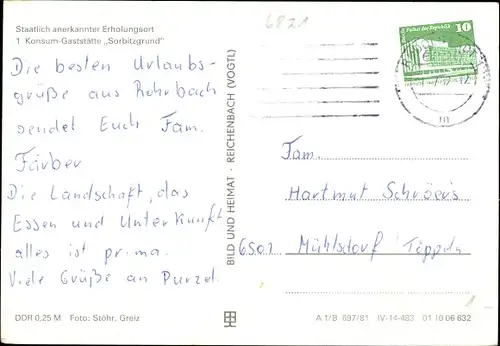 Staatlich anerkannter Erholungsort
1 Konsum-Gaststätte „Sorbitzgrund"
Die besten Urlaubs-
grüße aus Rohrbach
sendet Euch Fam.
Färber
Die Landschaft, das
Essen und Unterkunft
alles ist prima.
Viele Grüße an Purzel.
DDR 0,25 M Foto: Stöhr, Greiz
BILD UND HEIMAT · REICHENBACH (VOGTL)
6821
Palast der Republik
10
Fam.
Hartmut Schröers
6501 Mühlsdorf
A 1/B 697/81 IV-14-483 01 10 06 632